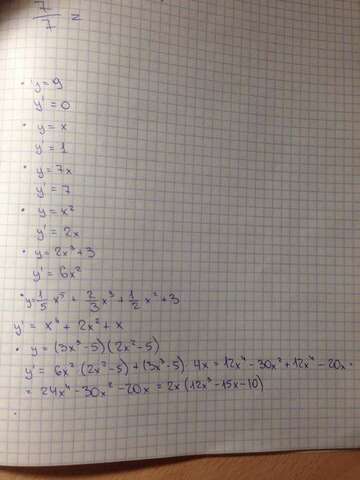 7/7 =
• y = 9
y' = 0
• y = x
y' = 1
• y = 7x
y' = 7
• y = x²
y' = 2x
• y = 2x³ + 3
y' = 6x²
• y = 1/5 x⁵ + 2/3 x³ + 1/2 x² + 3
y' = x⁴ + 2x² + x
• y = (3x³ - 5)(2x² - 5)
y' = 6x² (2x² - 5) + (3x³ - 5) · 4x = 12x⁴ - 30x² + 12x⁴ - 20x =
= 24x⁴ - 30x² - 20x = 2x (12x³ - 15x - 10)